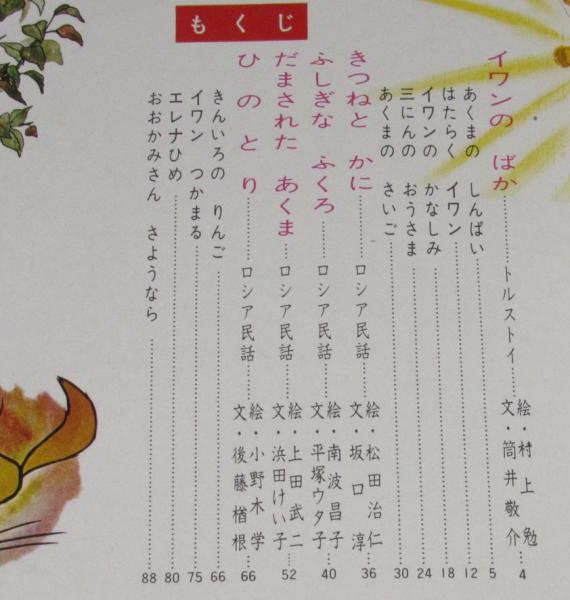 もくじ
イワンの ばか………トルストイ………絵・村上勉 文・筒井敬介 4
あくまの しんぱい………5
はたらく イワン………12
イワンの かなしみ………18
三にんの おうさま………24
あくまの さいご………30
きつねと かに………ロシア民話………絵・松田治仁 文・坂口淳 36
ふしぎな ふくろ………ロシア民話………絵・南波昌子 文・平塚ウタ子 40
だまされた あくま………ロシア民話………絵・上田武二 文・浜田けい子 52
ひのとり………ロシア民話………絵・小野木学 文・後藤楢根 66
きんいろの りんご………66
イワン つかまる………75
エレナひめ………80
おおかみさん さようなら………88